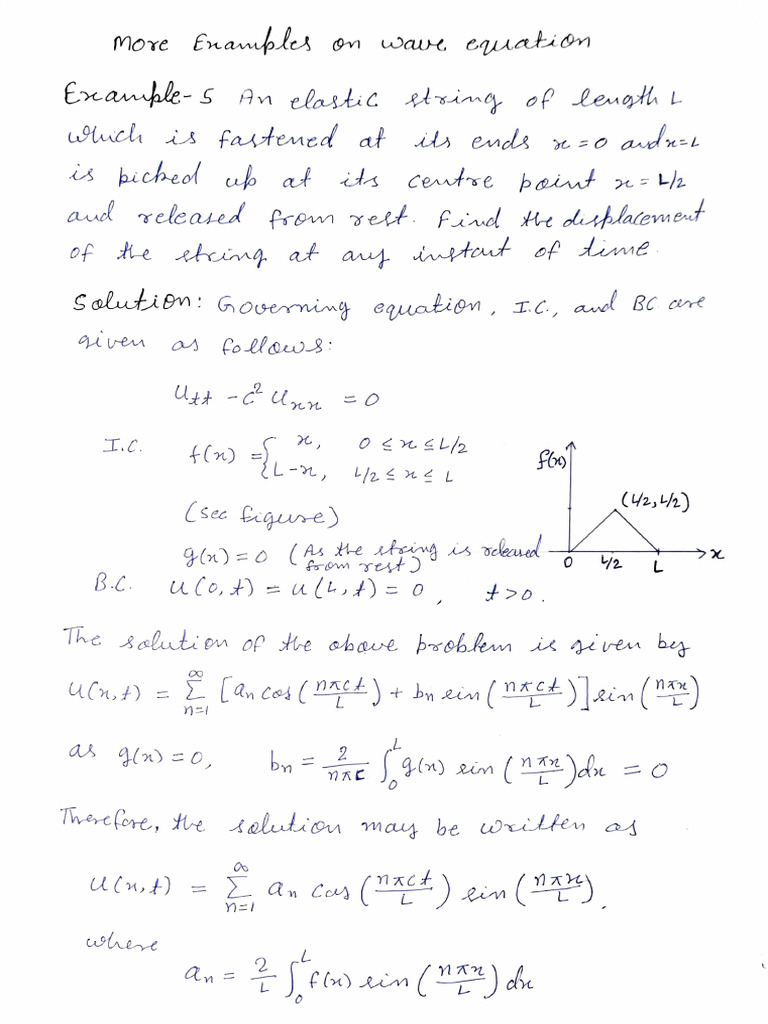 More Examples on wave equation
Example-5 An elastic string of length L
which is fastened at its ends x=0 and x=L
is picked up at its centre point x=L/2
and released from rest. Find the displacement
of the string at any instant of time.
Solution: Governing equation, I.C., and BC are
given as follows:
u_tt - c² u_xx = 0
I.C. f(x) = { x, 0 ≤ x ≤ L/2
L-x, L/2 ≤ x ≤ L
f(x)
(L/2, L/2)
(see figure)
g(x) = 0 (As the string is released
from rest)
0 L/2 L x
B.C. u(0,t) = u(L,t) = 0, t>0.
The solution of the above problem is given by
u(x,t) = ∑_{n=1}^{∞} [a_n cos(nπct/L) + b_n sin(nπct/L)] sin(nπx/L)
as g(x)=0, b_n = 2/nπc ∫_0^L g(x) sin(nπx/L) dx = 0
Therefore, the solution may be written as
u(x,t) = ∑_{n=1}^{∞} a_n cos(nπct/L) sin(nπx/L).
where
a_n = 2/L ∫_0^L f(x) sin(nπx/L) dx